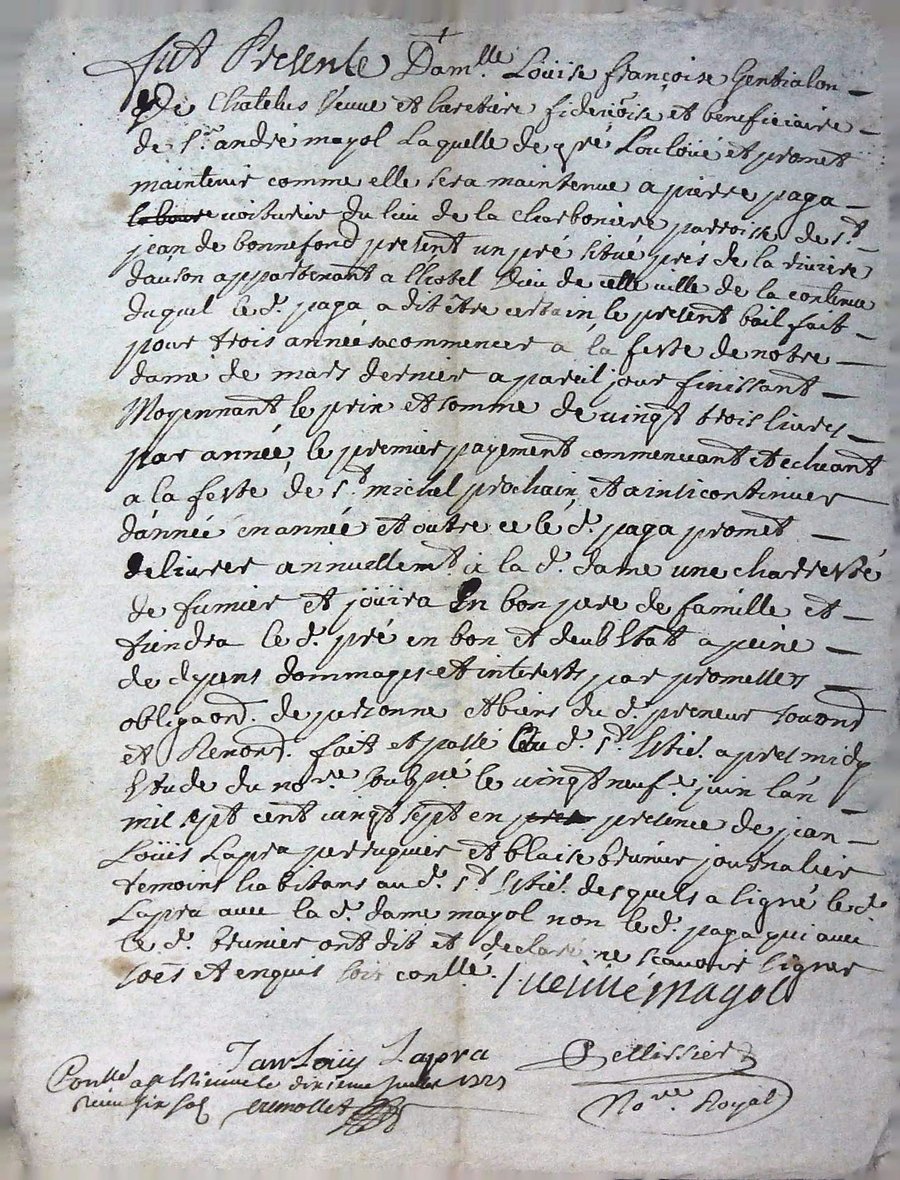 fut Presente Dam.lle Louise françoise Gentialon
De Chatelus Veuve et heretiere fidei et beneficiaire
de Sr. andré mayol Laquelle de gré Loue et promet
maintenir comme elle sera maintenue a pierre paga
voiturier du lieu de la charboniere parroisse de St.
jean de bonnefond present un pré situé prés de la riviere
dauson appartenant a Lhotel Dieu de cette ville de la contenue
duquel le d. paga a dit être certain, le present bail fait
pour trois années a commencer a la feste de notre
dame de mars dernier a pareil jour finissant
Moyennant le prix et somme de vingt trois livres
par année, le premier payement commencant et echeant
a la feste de St. michel prochain, et ainsi continuer
dannée en année et outre ce le d. paga promet
delivrer annuellemt. a la d. dame une charretté
de fumier et joüira En bon pere de famille et
tiendra le d. pré en bon et deub Estat a peine
de dpens dommages et interests par promesses
obligaons. de personne et biens du d. preneur
et Renond. fait et passé au d. St. Etie. apres midy
Etude du nore. soubgné. le vingt neufe. juin lan
mil sept cent vingt sept en presence de jean
Loüis Lapra perruquier et blaise brunier journalier
temoins habitans au d. St. Etie. desquels a signé le d.
Lapra avec la d. dame mayol non le d. paga qui avec
le d. brunier ont dit et declaré ne scavoir signer
de ce et enquis soit conllé.
veuve mayol
Jan Loüy Lapra
Pellissier
Conllé a St Etienne le dixieme juillet 1727
six sol
Nore. Royal